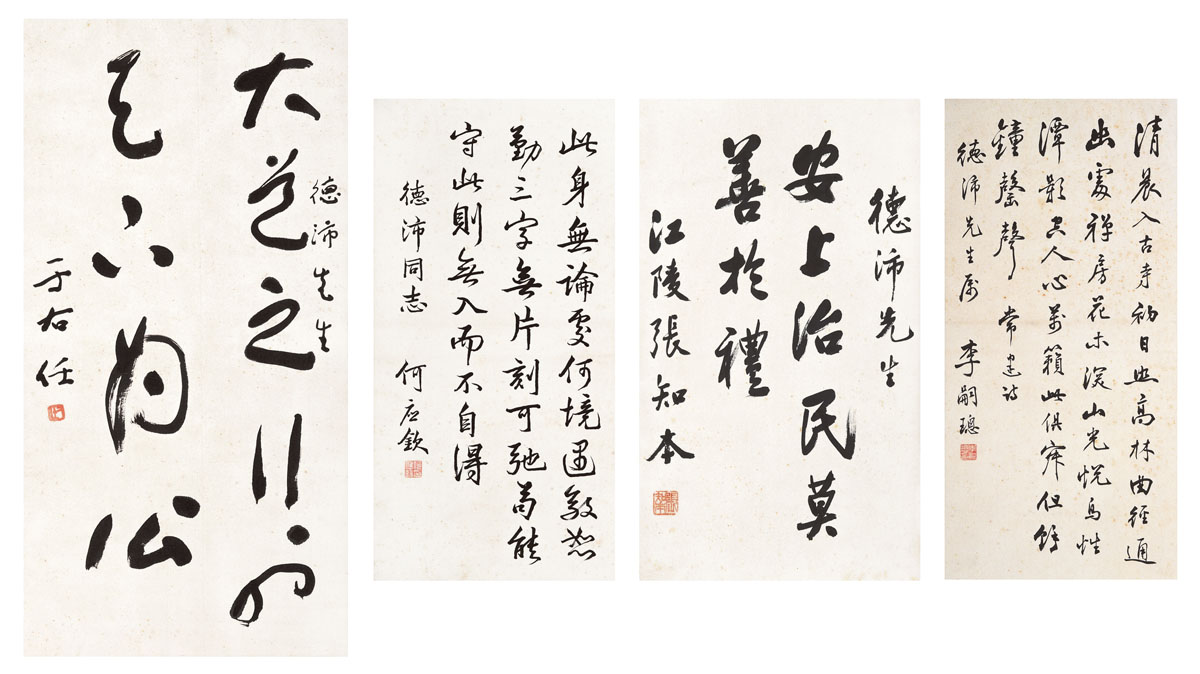 德沛先生
大道之行也
天下為公
于右任
此身無論處何境遇敬恕
勤三字無片刻可弛苟能
守此則無入而不自得
德沛同志 何應欽
德沛先生
安上治民莫
善於禮
江陵張知本
清晨入古寺初日照高林曲徑通
幽處禪房花木深山光悅鳥性
潭影空人心萬籟此俱寂但餘
鐘罄聲 常建詩
德沛先生属 李嗣璁